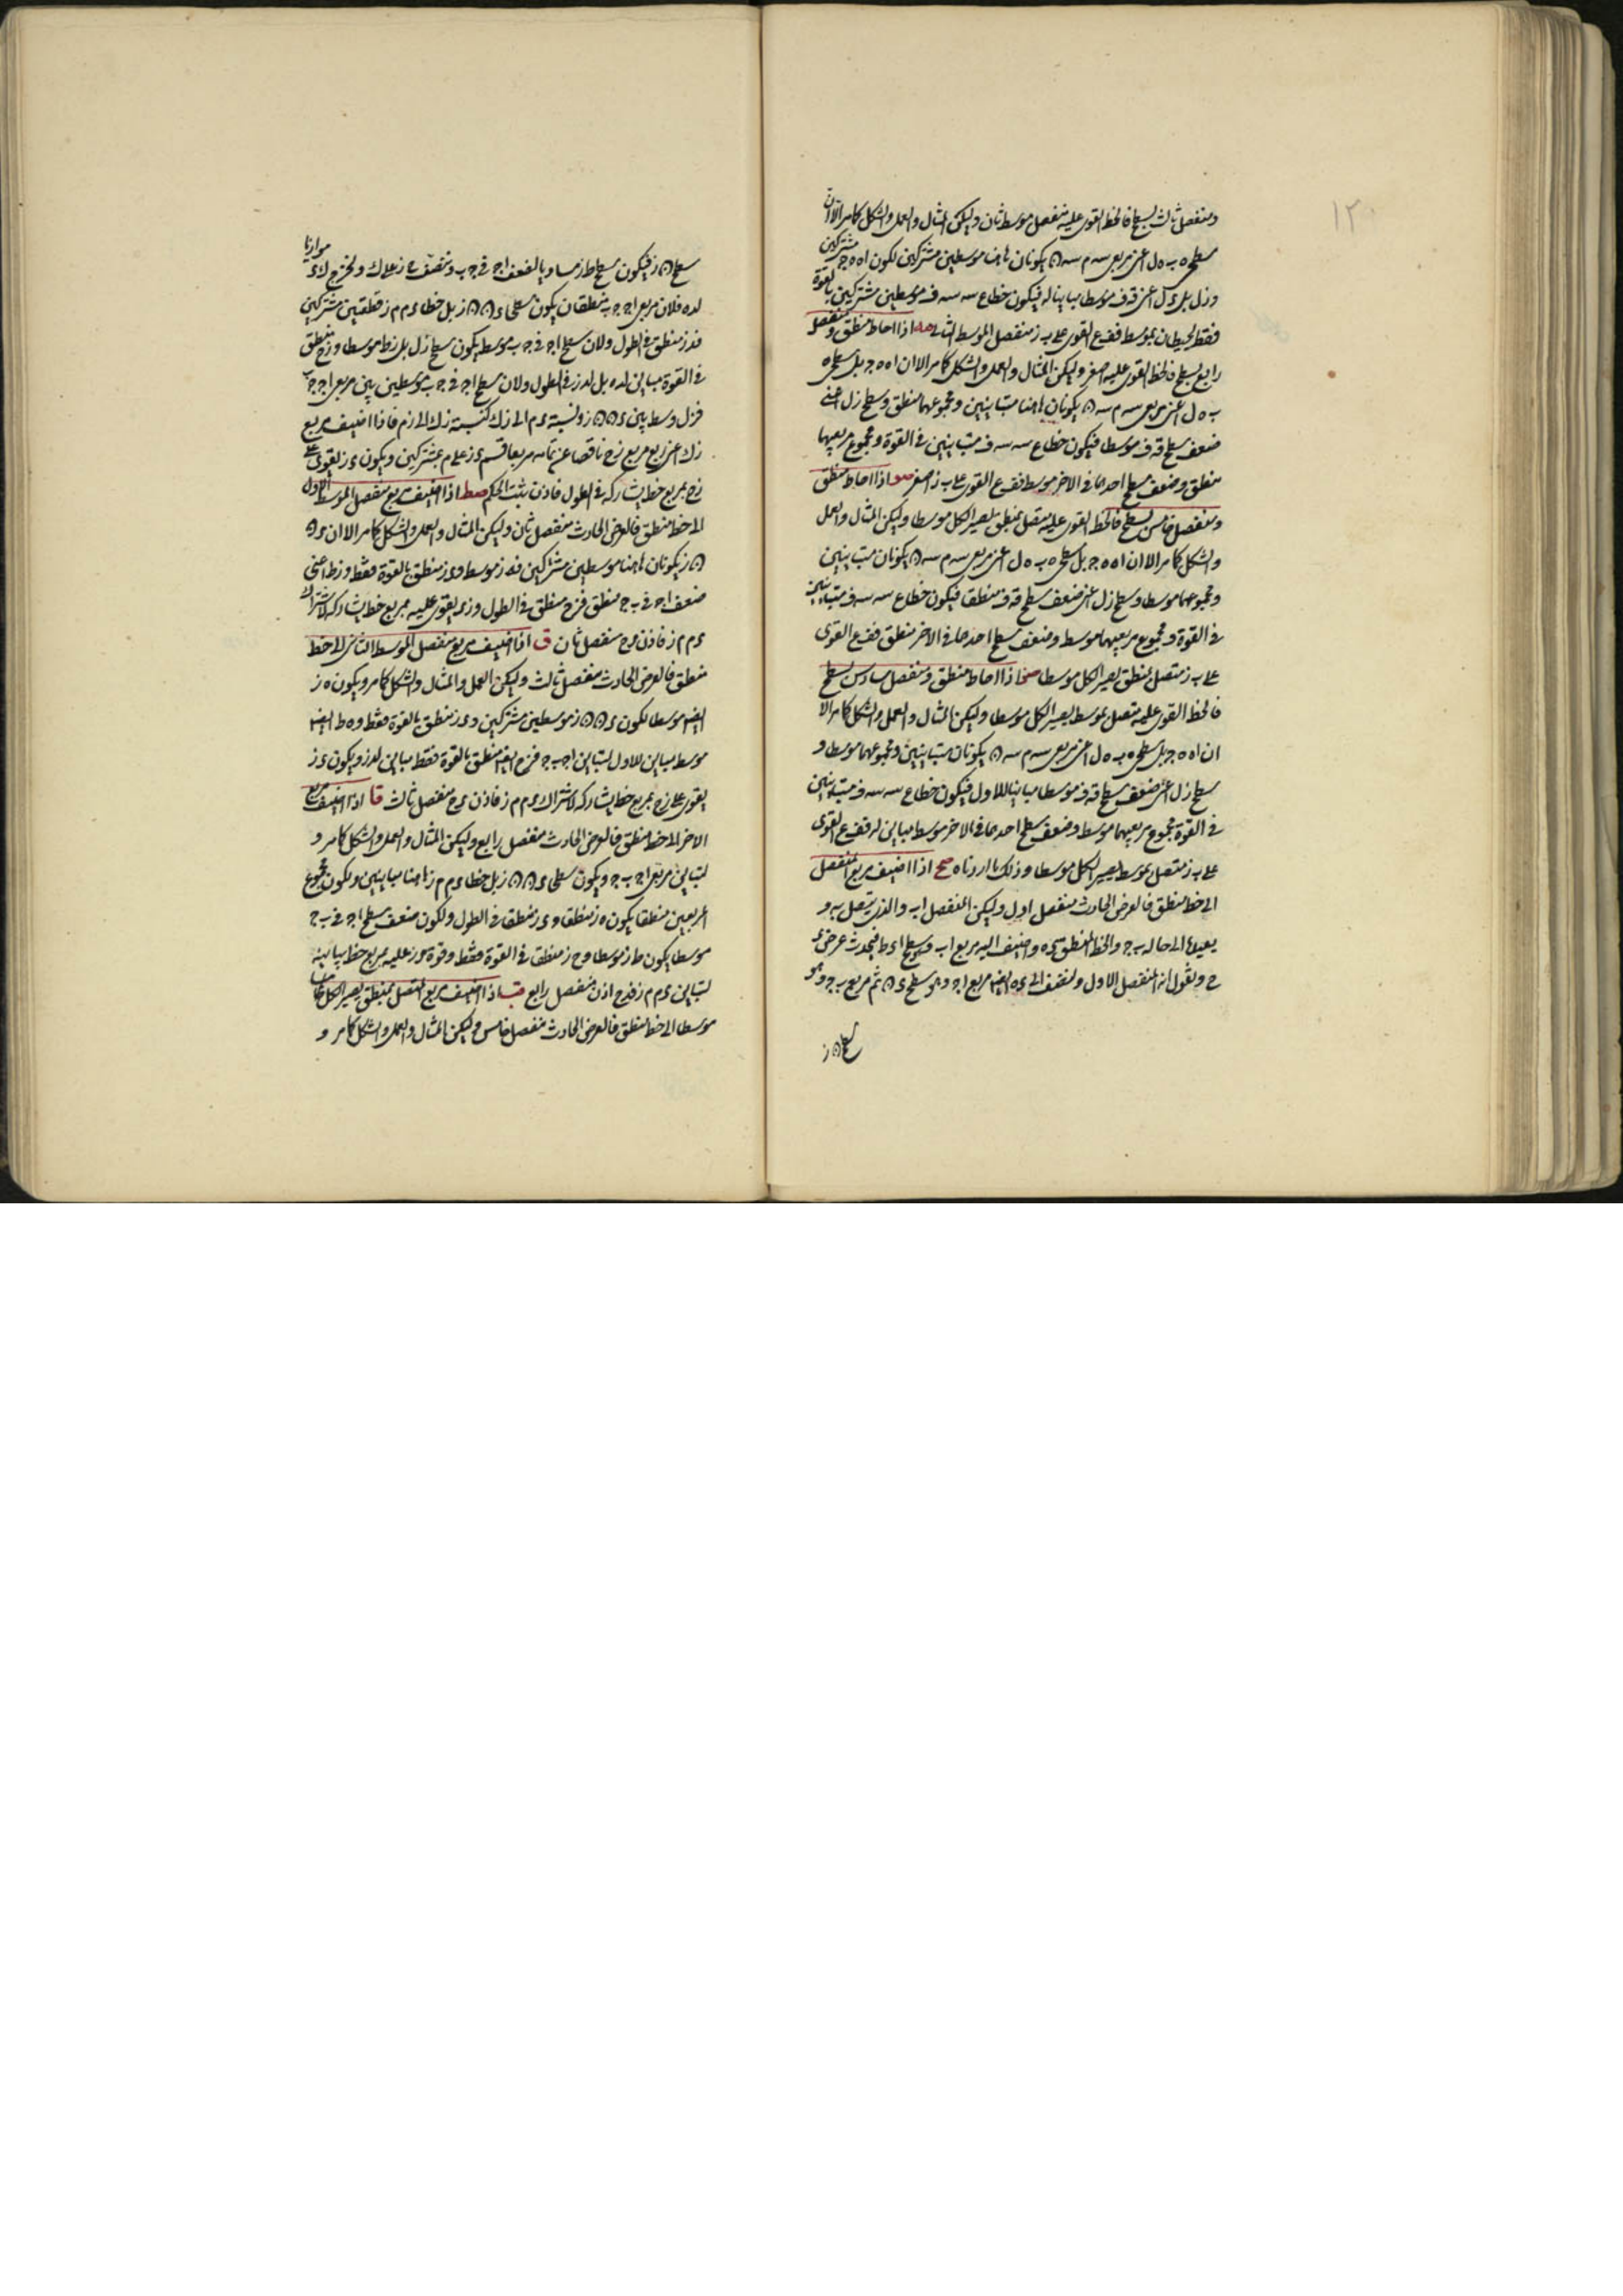 ١٢٠
ومنفصل ثالث بسطح فالخط القوى عليه منفصل موسط ثان وليكن المثال والعمل والشكل كما مر الا ان
سطحى ه ب ه ل اعنى مربعى يكونان هاهنا موسطين مشتركين لكون ا ه ه ج مشتركين
و ز ل بل ى ل اعنى ق ف موسطا مباينا له فيكون خطا ع س س ف موسطين مشتركين بالقوة
فقط يحيطان بموسط فع القوى على ب ز منفصل الموسط الثانى صه اذا احاط منطق ومنفصل
رابع بسطح فالخط القوى عليه اصغر وليكن المثال والعمل والشكل كما مر الا ان ا ه ه ج بل سطحى ه
ب ه ل اعنى مربعى يكونان هاهنا متباينين ومجموعهما منطق وسطح ز ل اعنى
ضعف سطح ق ف موسطا فيكون خطا ع س س ف متباينين فى القوة ومجموع مربعيهما
منطق وضعف سطح احدهما فى الاخر موسط فع القوى على ب ز اصغر صو اذا احاط منطق
ومنفصل خامس بسطح فالخط القوى عليه متصل بمنطق يصير الكل موسطا وليكن المثال والعمل
والشكل كما مر الا ان ا ه ه ج بل سطحى ه ب ه ل اعنى مربعى يكونان متباينين
ومجموعهما موسطا وسطح ز ل اعنى ضعف سطح ق ف منطقا فيكون خطا ع س س ف متباينين
فى القوة ومجموع مربعيهما موسط وضعف سطح احدهما فى الاخر منطق فع القوى
على ب ز متصل بمنطق يصير الكل موسطا صز اذا احاط منطق ومنفصل سادس بسطح
فالخط القوى عليه متصل بموسط يصير الكل موسطا وليكن المثال والعمل والشكل كما مر الا
ان ا ه ه ج بل سطحى ه ب ه ل اعنى مربعى يكونان متباينين ومجموعهما موسطا و
سطح ز ل اعنى ضعف سطح ق ف موسطا مباينا للاول فيكون خطا ع س س ف متباينين
فى القوة مجموع مربعيهما موسط وضعف سطح احدهما فى الاخر موسط مباين له فع القوى
على ب ز متصل بموسط يصير الكل موسطا وذلك ما اردناه صح اذا اضيف مربع المنفصل
الى خط منطق فالعرض الحادث منفصل اول وليكن المنفصل ا ب والذى يتصل به و
يعيدها الى حاله ب ج والخط المنطق ى ه واضيف اليه مربع ا ب وهو سطح ا ى ط فيحدث عرض ى
ح ونقول انه المنفصل الاول ولنضف الى ى ه ايضا مربع ا ج وهو سطح ثم مربع ب ج وهو
سطح ز
سطح ز فيكون سطح ط ز مساويا لضعف ا ج فى ج ب وننصف ح ز على ك ونخرج ك ل موازيا
ل ى ه فلان مربعى ا ج ج ب منطقان يكون سطحا ز بل خطا ى م م ز منطقين مشتركين
ف ى ز منطق فى الطول ولان سطح ا ج فى ج ب موسط يكون سطح ز ل بل ز ط موسطا و ز ح منطق
فى القوة مباين ل ى ه بل ل ى ز فى الطول ولان سطح ا ج فى ج ب موسطين بين مربعى ا ج ج ب
ف ز ل وسط بين ز ونسبة ى م الى ز ك كنسبة ز ك الى ز م فاذا اضيف مربع
ز ك اعنى ربع مربع ز ح ناقصا عن تمامه مربعا قسم ى ز على م بمشتركين ويكون ى ز يقوى على
ز ح بمربع خط يشاركه فى الطول فاذن يثبت الحكم صط اذا اضيف مربع منفصل الموسط الاول
الى خط منطق فالعرض الحادث منفصل ثان وليكن المثال والعمل والشكل كما مر الا ان
ز يكونان هاهنا موسطين مشتركين ف ه ز موسط و ى ز منطق بالقوة فقط و ز ط اعنى
ضعف ا ج فى ب ج منطق ف ز ح منطق فى الطول و ز ى يقوى عليه بمربع خط يشاركه لاشتراك
ى م م ز فاذن ى ح منفصل ثان ق اذا اضيف مربع منفصل الموسط الثانى الى خط
منطق فالعرض الحادث منفصل ثالث وليكن العمل والمثال والشكل كما مر ويكون ه ز
ايضا موسطا لكون ز موسطين مشتركين و ى ز منطق بالقوة فقط و ه ط ايضا
موسط مباين للاول لتباين ا ج ب ج ف ز ح ايضا منطق بالقوة فقط مباين ل ى ز ويكون ى ز
يقوى على ز ح بمربع خط يشاركه لاشتراك ى م م ز فاذن ى ح منفصل ثالث قا اذا اضيف مربع
الاصغر الى خط منطق فالعرض الحادث منفصل رابع وليكن المثال والعمل والشكل كما مر و
لتباين مربعى ا ج ب ج ويكون سطحا ز بل خطا ى م م ز هاهنا متباينين ولكون مجموع
المربعين منطقا يكون ه ز منطقا و ى ز منطقا فى الطول ولكون ضعف سطح ا ج فى ب ج
موسطا يكون ط ز موسطا و ح ز منطقا فى القوة فقط وقوة ى ز عليه بمربع خط يباينه
لتباين ى م م ز ف ى ح اذن منفصل رابع قب اذا اضيف مربع المتصل بمنطق يصير الكل معه
موسطا الى خط منطق فالعرض الحادث منفصل خامس وليكن المثال والعمل والشكل كما مر و